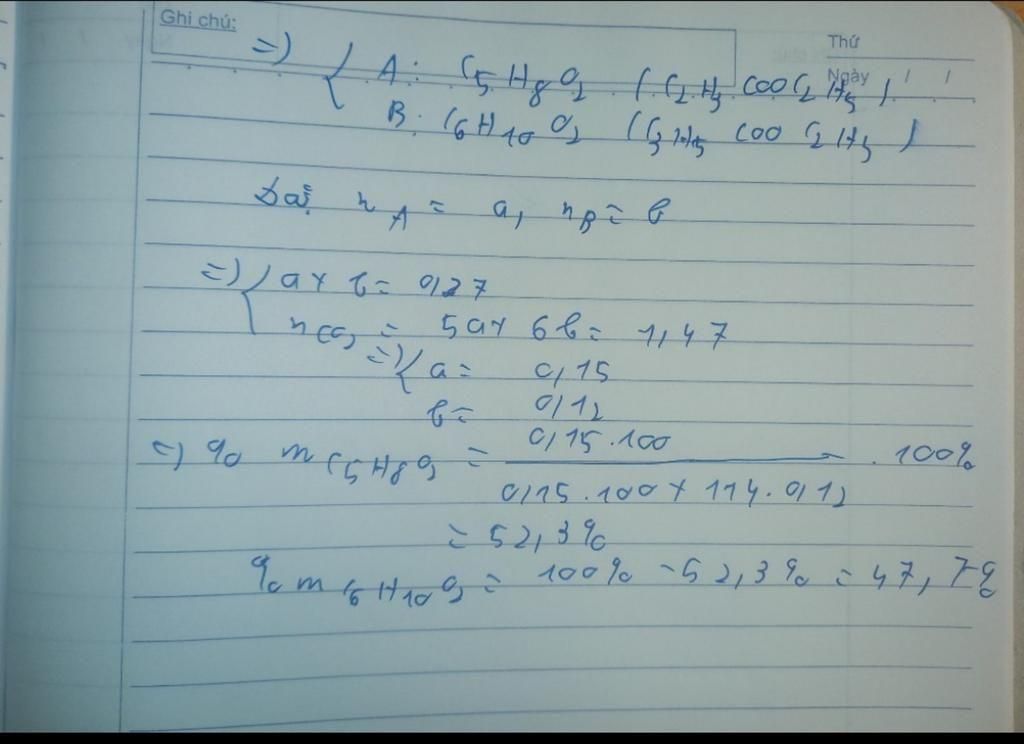 Ghi chú:
Thứ
Ngày / /
=> { A: C5H8O2 (C2H3COOC2H5)
B: C6H10O2 (C3H5COOC2H5)
Đặt nA = a, nB = b
=> { a + b = 0,27
nCO2 = 5a + 6b = 1,47
=> { a = 0,15
b = 0,12
=> % m C5H8O2 = 0,15.100 / 0,15.100 + 114.0,12 . 100%
= 52,3%
% m C6H10O2 = 100% - 52,3% = 47,7%